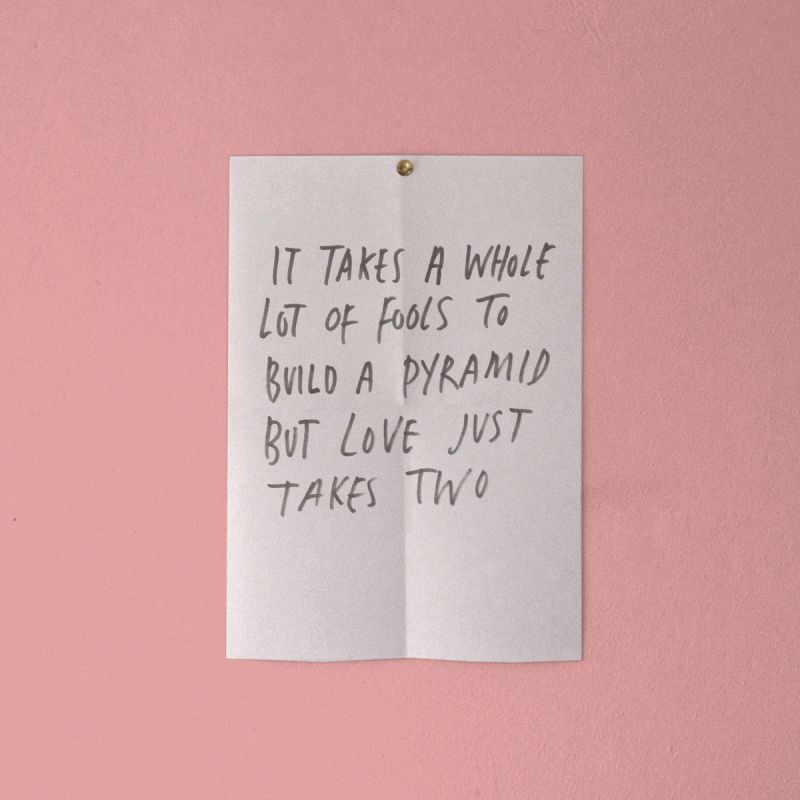 IT TAKES A WHOLE
LOT OF FOOLS TO
BUILD A PYRAMID
BUT LOVE JUST
TAKES TWO